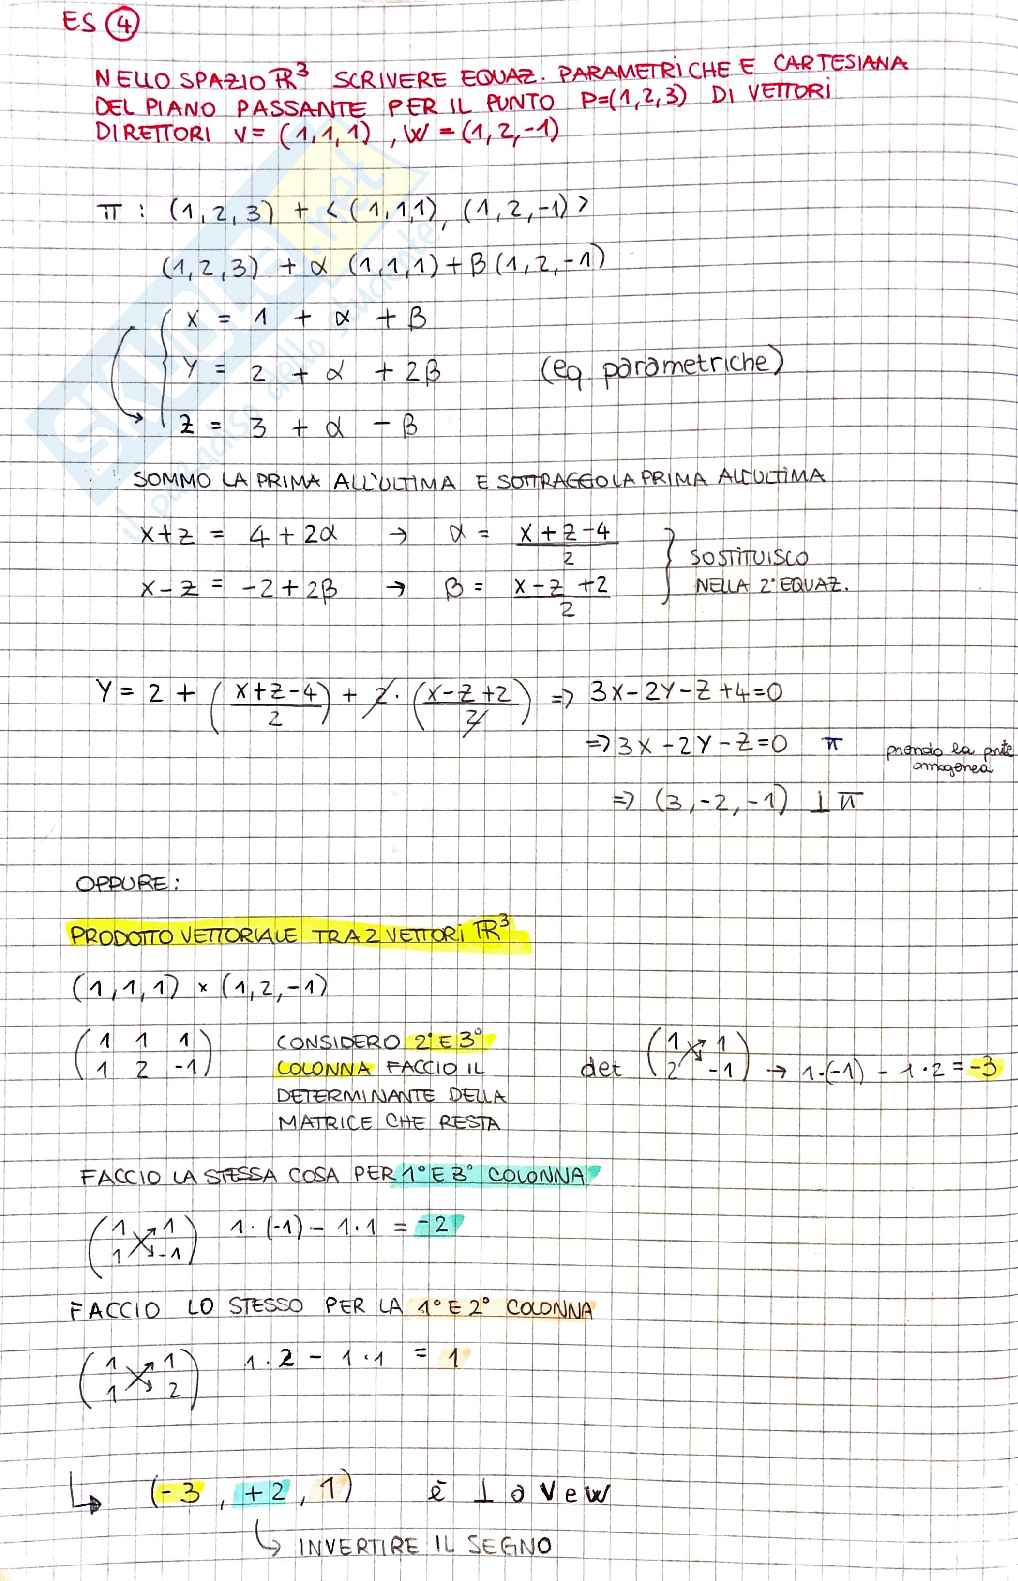 ES 4
NELLO SPAZIO ℝ³ SCRIVERE EQUAZ. PARAMETRICHE E CARTESIANA
DEL PIANO PASSANTE PER IL PUNTO P=(1,2,3) DI VETTORI
DIRETTORI V=(1,1,1), W=(1,2,-1)
π : (1,2,3) + <(1,1,1), (1,2,-1)>
(1,2,3) + α (1,1,1) + β (1,2,-1)
X = 1 + α + β
Y = 2 + α + 2β (eq. parametriche)
Z = 3 + α - β
SOMMO LA PRIMA ALL'ULTIMA E SOTTRAGGO LA PRIMA ALL'ULTIMA
X+Z = 4+2α → α = (X+Z-4)/2
X-Z = -2+2β → β = (X-Z+2)/2
SOSTITUISCO
NELLA 2° EQUAZ.
Y = 2 + ((X+Z-4)/2) + 2·((X-Z+2)/2) => 3X-2Y-Z+4=0
=> 3X-2Y-Z=0 π prendo la parte
omogenea
=> (3,-2,-1) ⊥ π
OPPURE:
PRODOTTO VETTORIALE TRA 2 VETTORI ℝ³
(1,1,1) × (1,2,-1)
(1 1 1 CONSIDERO 2° E 3° det (1 1
1 2 -1) COLONNA FACCIO IL 2 -1) → 1·(-1) - 1·2 = -3
DETERMINANTE DELLA
MATRICE CHE RESTA
FACCIO LA STESSA COSA PER 1° E 3° COLONNA
(1 1 1·(-1) - 1·1 = -2
1 -1)
FACCIO LO STESSO PER LA 1° E 2° COLONNA
(1 1 1·2 - 1·1 = 1
1 2)
↳ (-3, +2, 1) è ⊥ a V e W
↳ INVERTIRE IL SEGNO
skuola.net
il paradiso dello studente